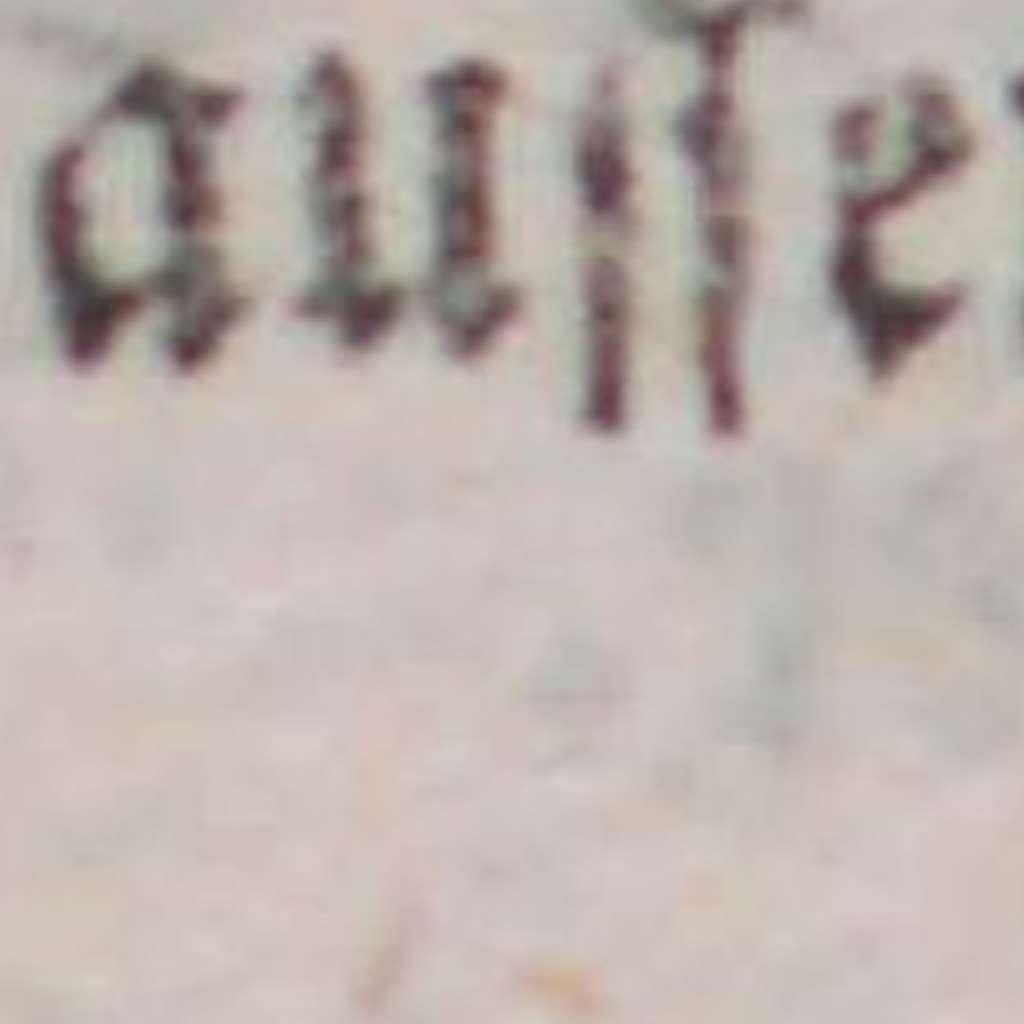 auſſe